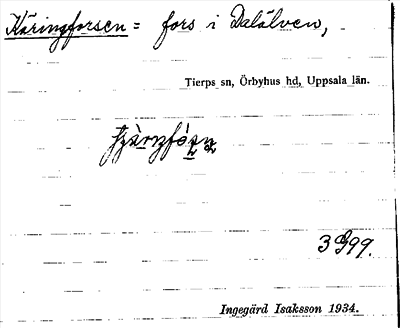 Käringforsen = fors i Dalälven,
Tierps sn, Örbyhus hd, Uppsala län.
3 G99.
Ingegärd Isaksson 1934.